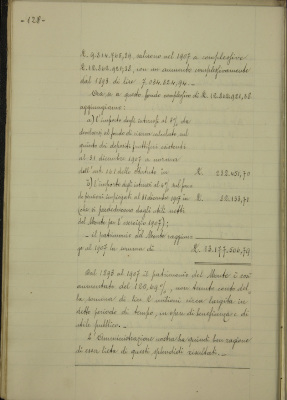 -128-
£. 9.214.906,29, salirono nel 1907 a complessive
£. 12.802.921,28, con un aumento complessivamente
dal 1893 di lire 7.084.624,94. -
Ora se a questo fondo complessivo di £. 12.802.921,28
aggiungiamo:
a) l'importo degli interessi al 4%, da
destinarsi al fondo di riserva intestato, sul
quinto dei depositi fruttiferi esistenti
al 31 dicembre 1907 a norma
dell'art. 141 dello Statuto in £. 232.451,70
b) l'importo degli interessi al 4%, sul fondo
di pensioni impiegati al 31 dicembre 1907 in £. 22.133,71
(che si preleveranno dagli utili netti
del Monte per l'esercizio 1907);
- il patrimonio del Monte raggiun-
ge al 1907 la somma di £. 13.177.506,79
Dal 1893 al 1907 il patrimonio del Monte è così
aumentato del %, non tenuto conto del-
la somma di lire 6 milioni circa largita in
detto periodo di tempo, in opere di beneficenza e di
utile pubblico. -
L'Amministrazione vostra ha quindi ben ragione
di esser lieta di questi splendidi risultati. -